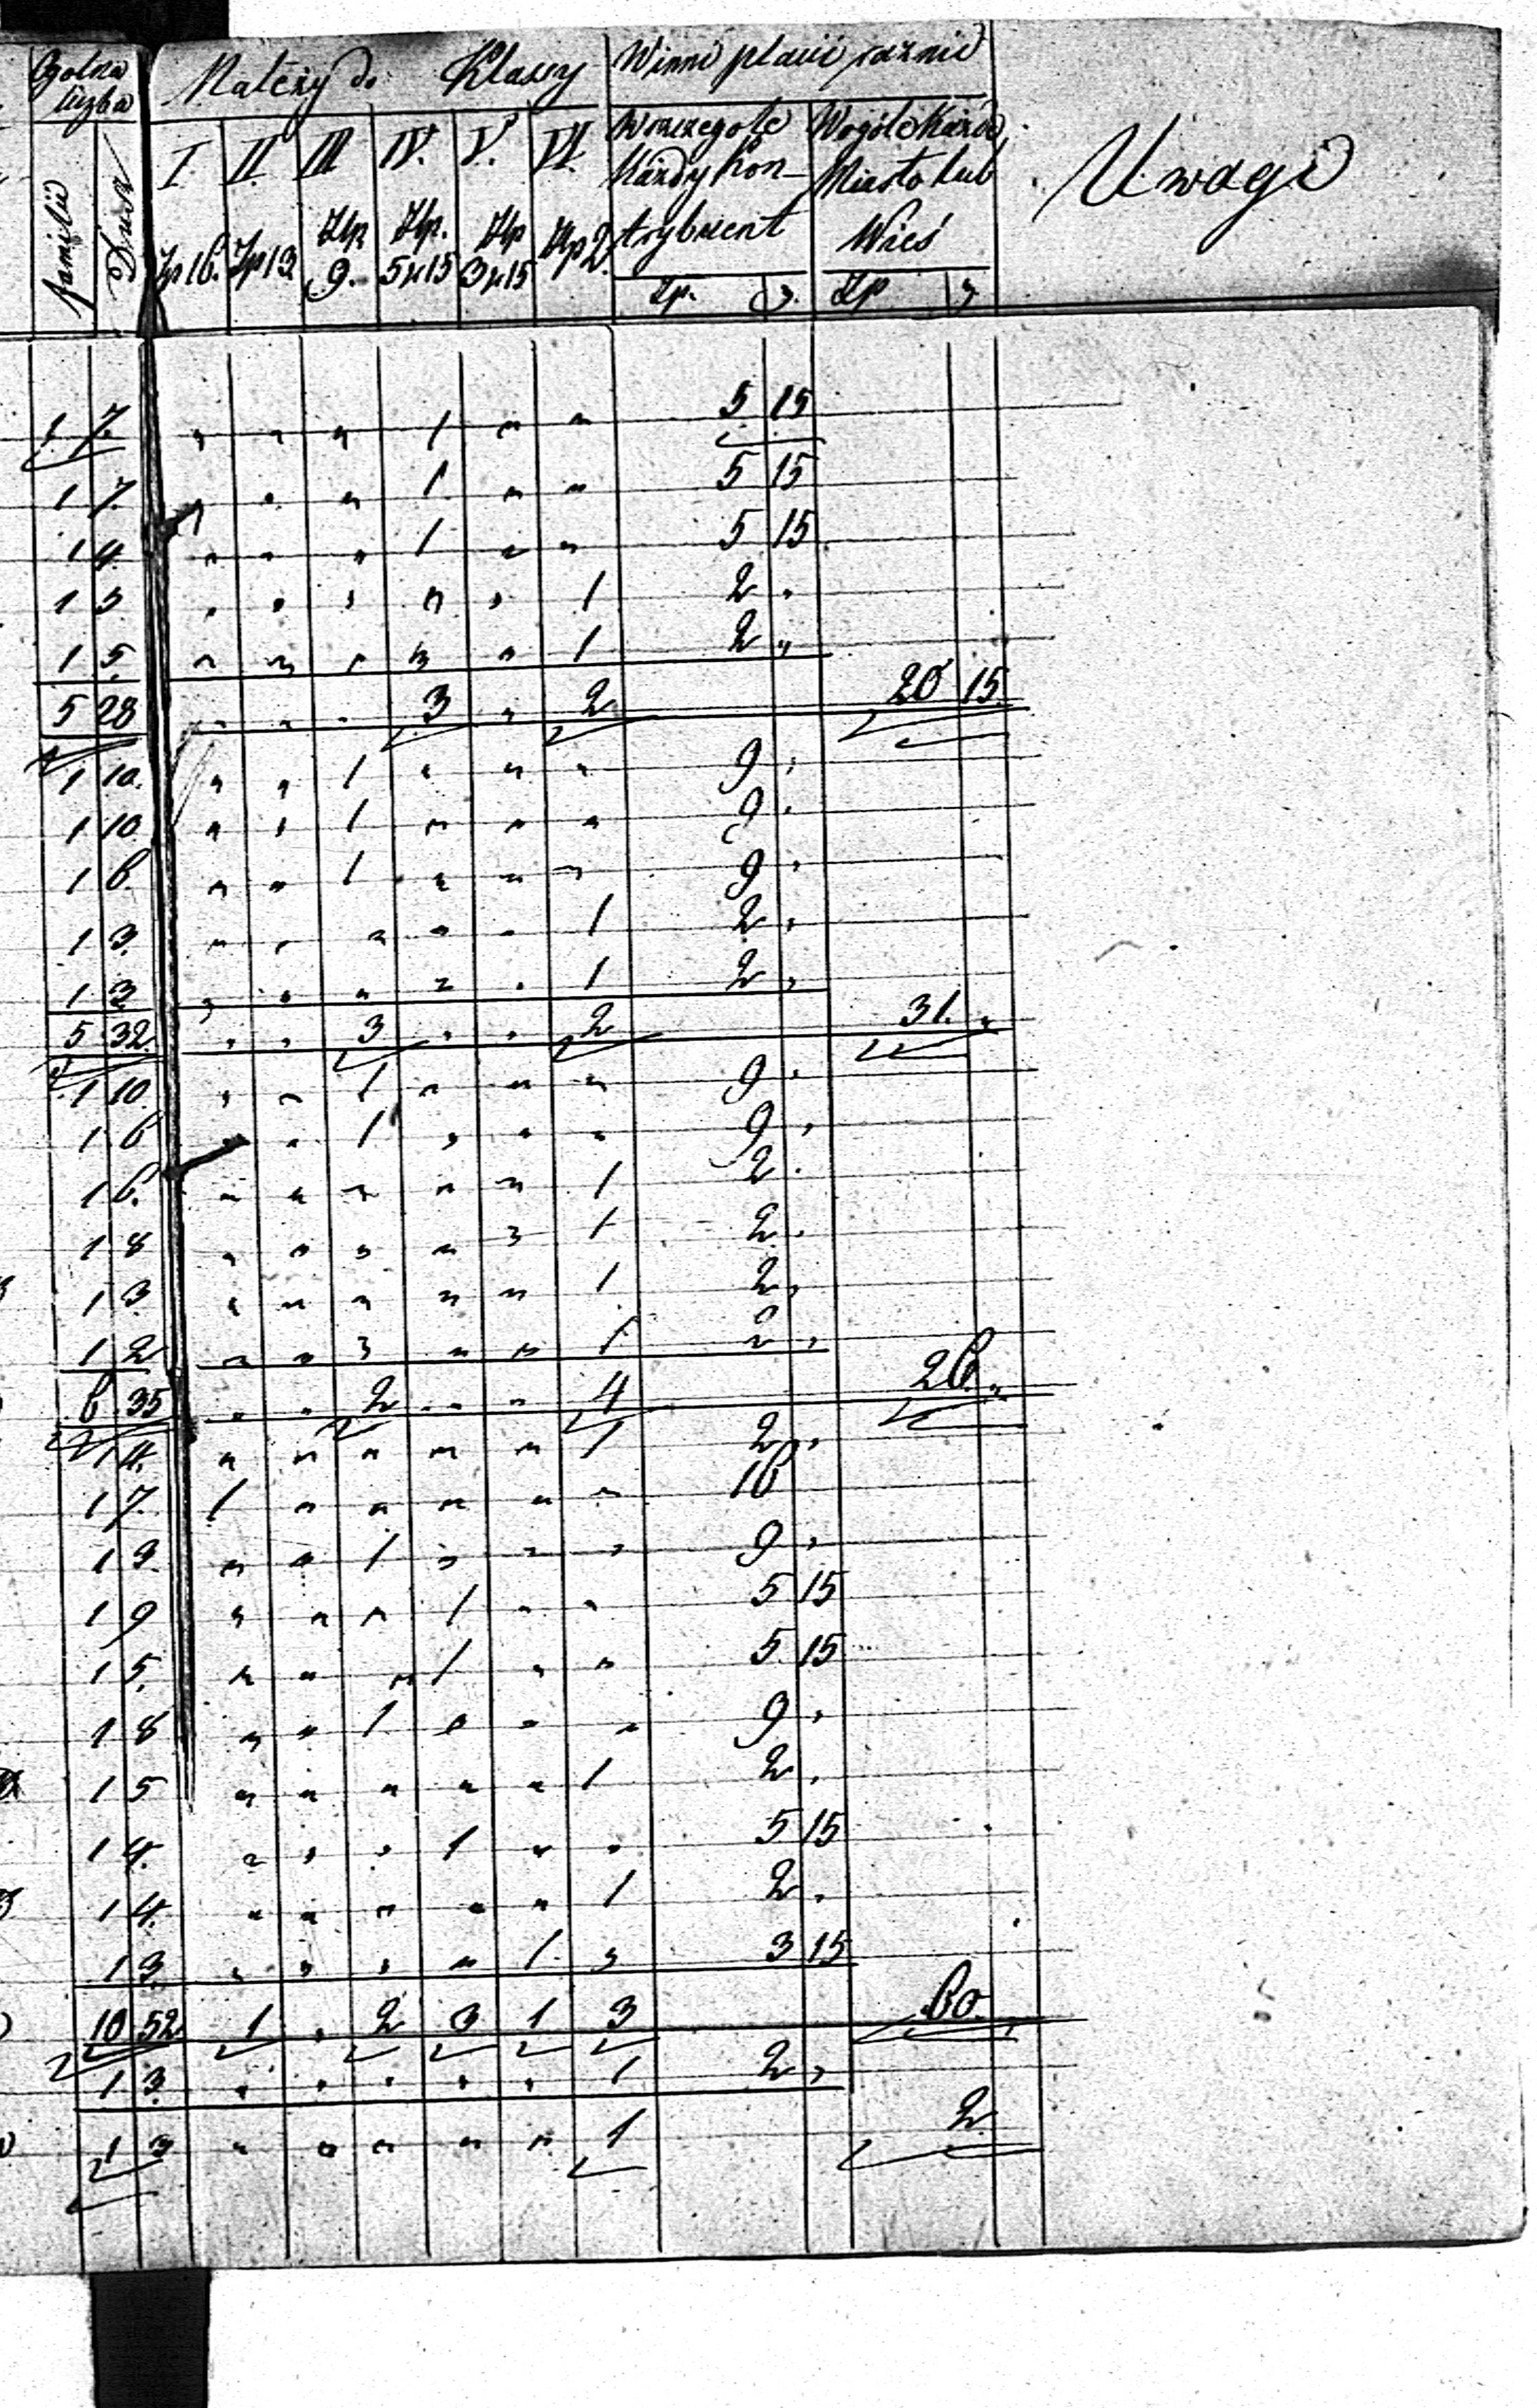 Ogolna liczba
Familii Dusz
Należy do Klassy
I. II. III IV. V. VI.
Zp 16. Zp 13 Złp 9. Złp. 5 gr 15 Złp 3 gr 15 Złp 2
Winni płacić rocznie
W szczególe każdy kontrybuent
Wogóle każde Miasto lub Wieś
Zp. g. Zp g
Uwagi
1 7. " " " 1 " " 5 15
1 7. " " " 1 " " 5 15
1 4. " " " 1 " " 5 15
1 5 " " " " " 1 2 "
1 5. " " " " " 1 2 "
5 28 " " " 3 " 2 20 15
1 10. " " 1 " " " 9 "
1 10 " " 1 " " " 9 "
1 6. " " 1 " " " 9 "
1 3. " " " " " 1 2 "
1 3 " " " " " 1 2 "
5 32 " " 3 " " 2 31. "
1 10. " " 1 " " " 9 "
1 6 " " 1 " " " 9 "
1 6. " " " " " 1 2 "
1 8 " " " " " 1 2 "
1 3. " " " " " 1 2 "
1 2 " " " " " 1 2 "
6 35 " " 2 " " 4 26. "
1 4. " " " " " 1 2 "
1 7. 1 " " " " " 16
1 3. " " 1 " " " 9 "
1 9 " " " 1 " " 5 15
1 5. " " " 1 " " 5 15
1 8 " " 1 " " " 9 "
1 5 " " " " " 1 2 "
1 4. " " " 1 " " 5 15
1 4. " " " " " 1 2 "
1 3. " " " " 1 " 3 15
10 52 1 " 2 3 1 3 60. "
1 3. " " " " " 1 2 "
1 3 " " " " " 1 2